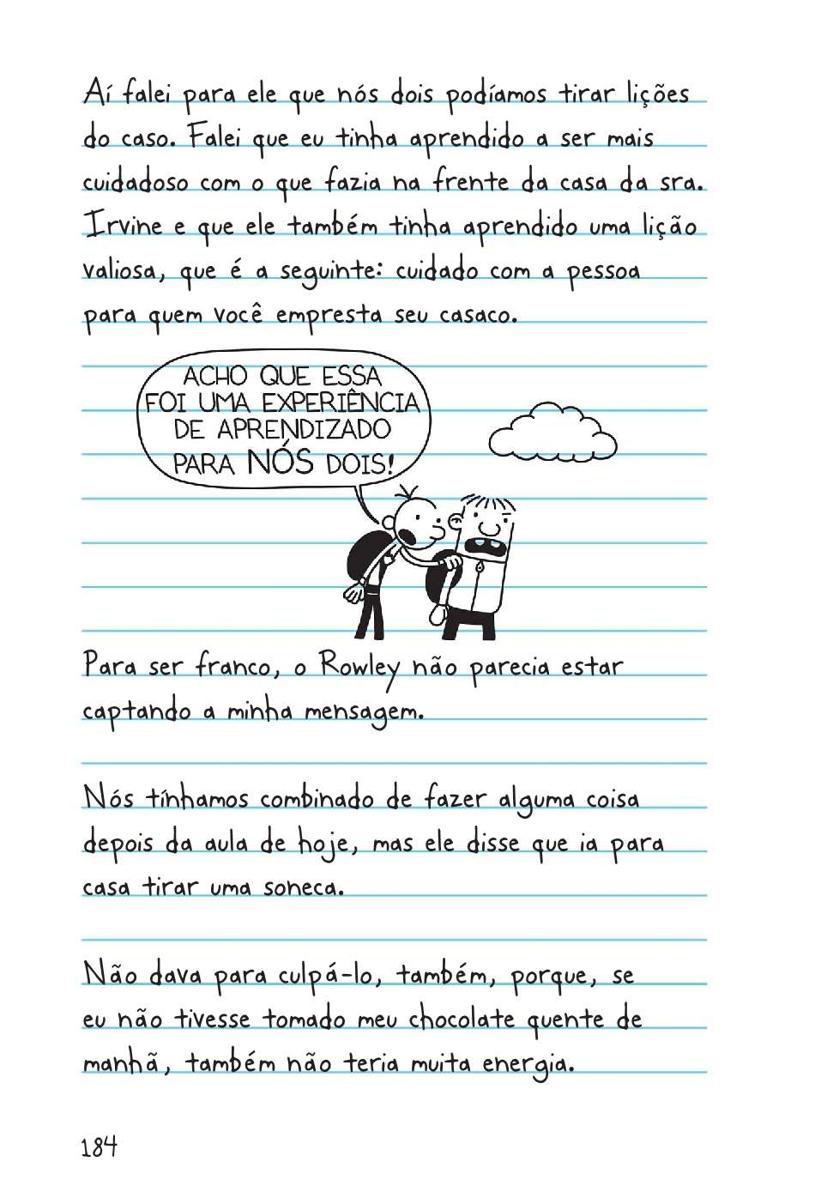 Aí falei para ele que nós dois podíamos tirar lições
do caso. Falei que eu tinha aprendido a ser mais
cuidadoso com o que fazia na frente da casa da sra.
Irvine e que ele também tinha aprendido uma lição
valiosa, que é a seguinte: cuidado com a pessoa
para quem você empresta seu casaco.
ACHO QUE ESSA
FOI UMA EXPERIÊNCIA
DE APRENDIZADO
PARA NÓS DOIS!
Para ser franco, o Rowley não parecia estar
captando a minha mensagem.
Nós tínhamos combinado de fazer alguma coisa
depois da aula de hoje, mas ele disse que ia para
casa tirar uma soneca.
Não dava para culpá-lo, também, porque, se
eu não tivesse tomado meu chocolate quente de
manhã, também não teria muita energia.
184